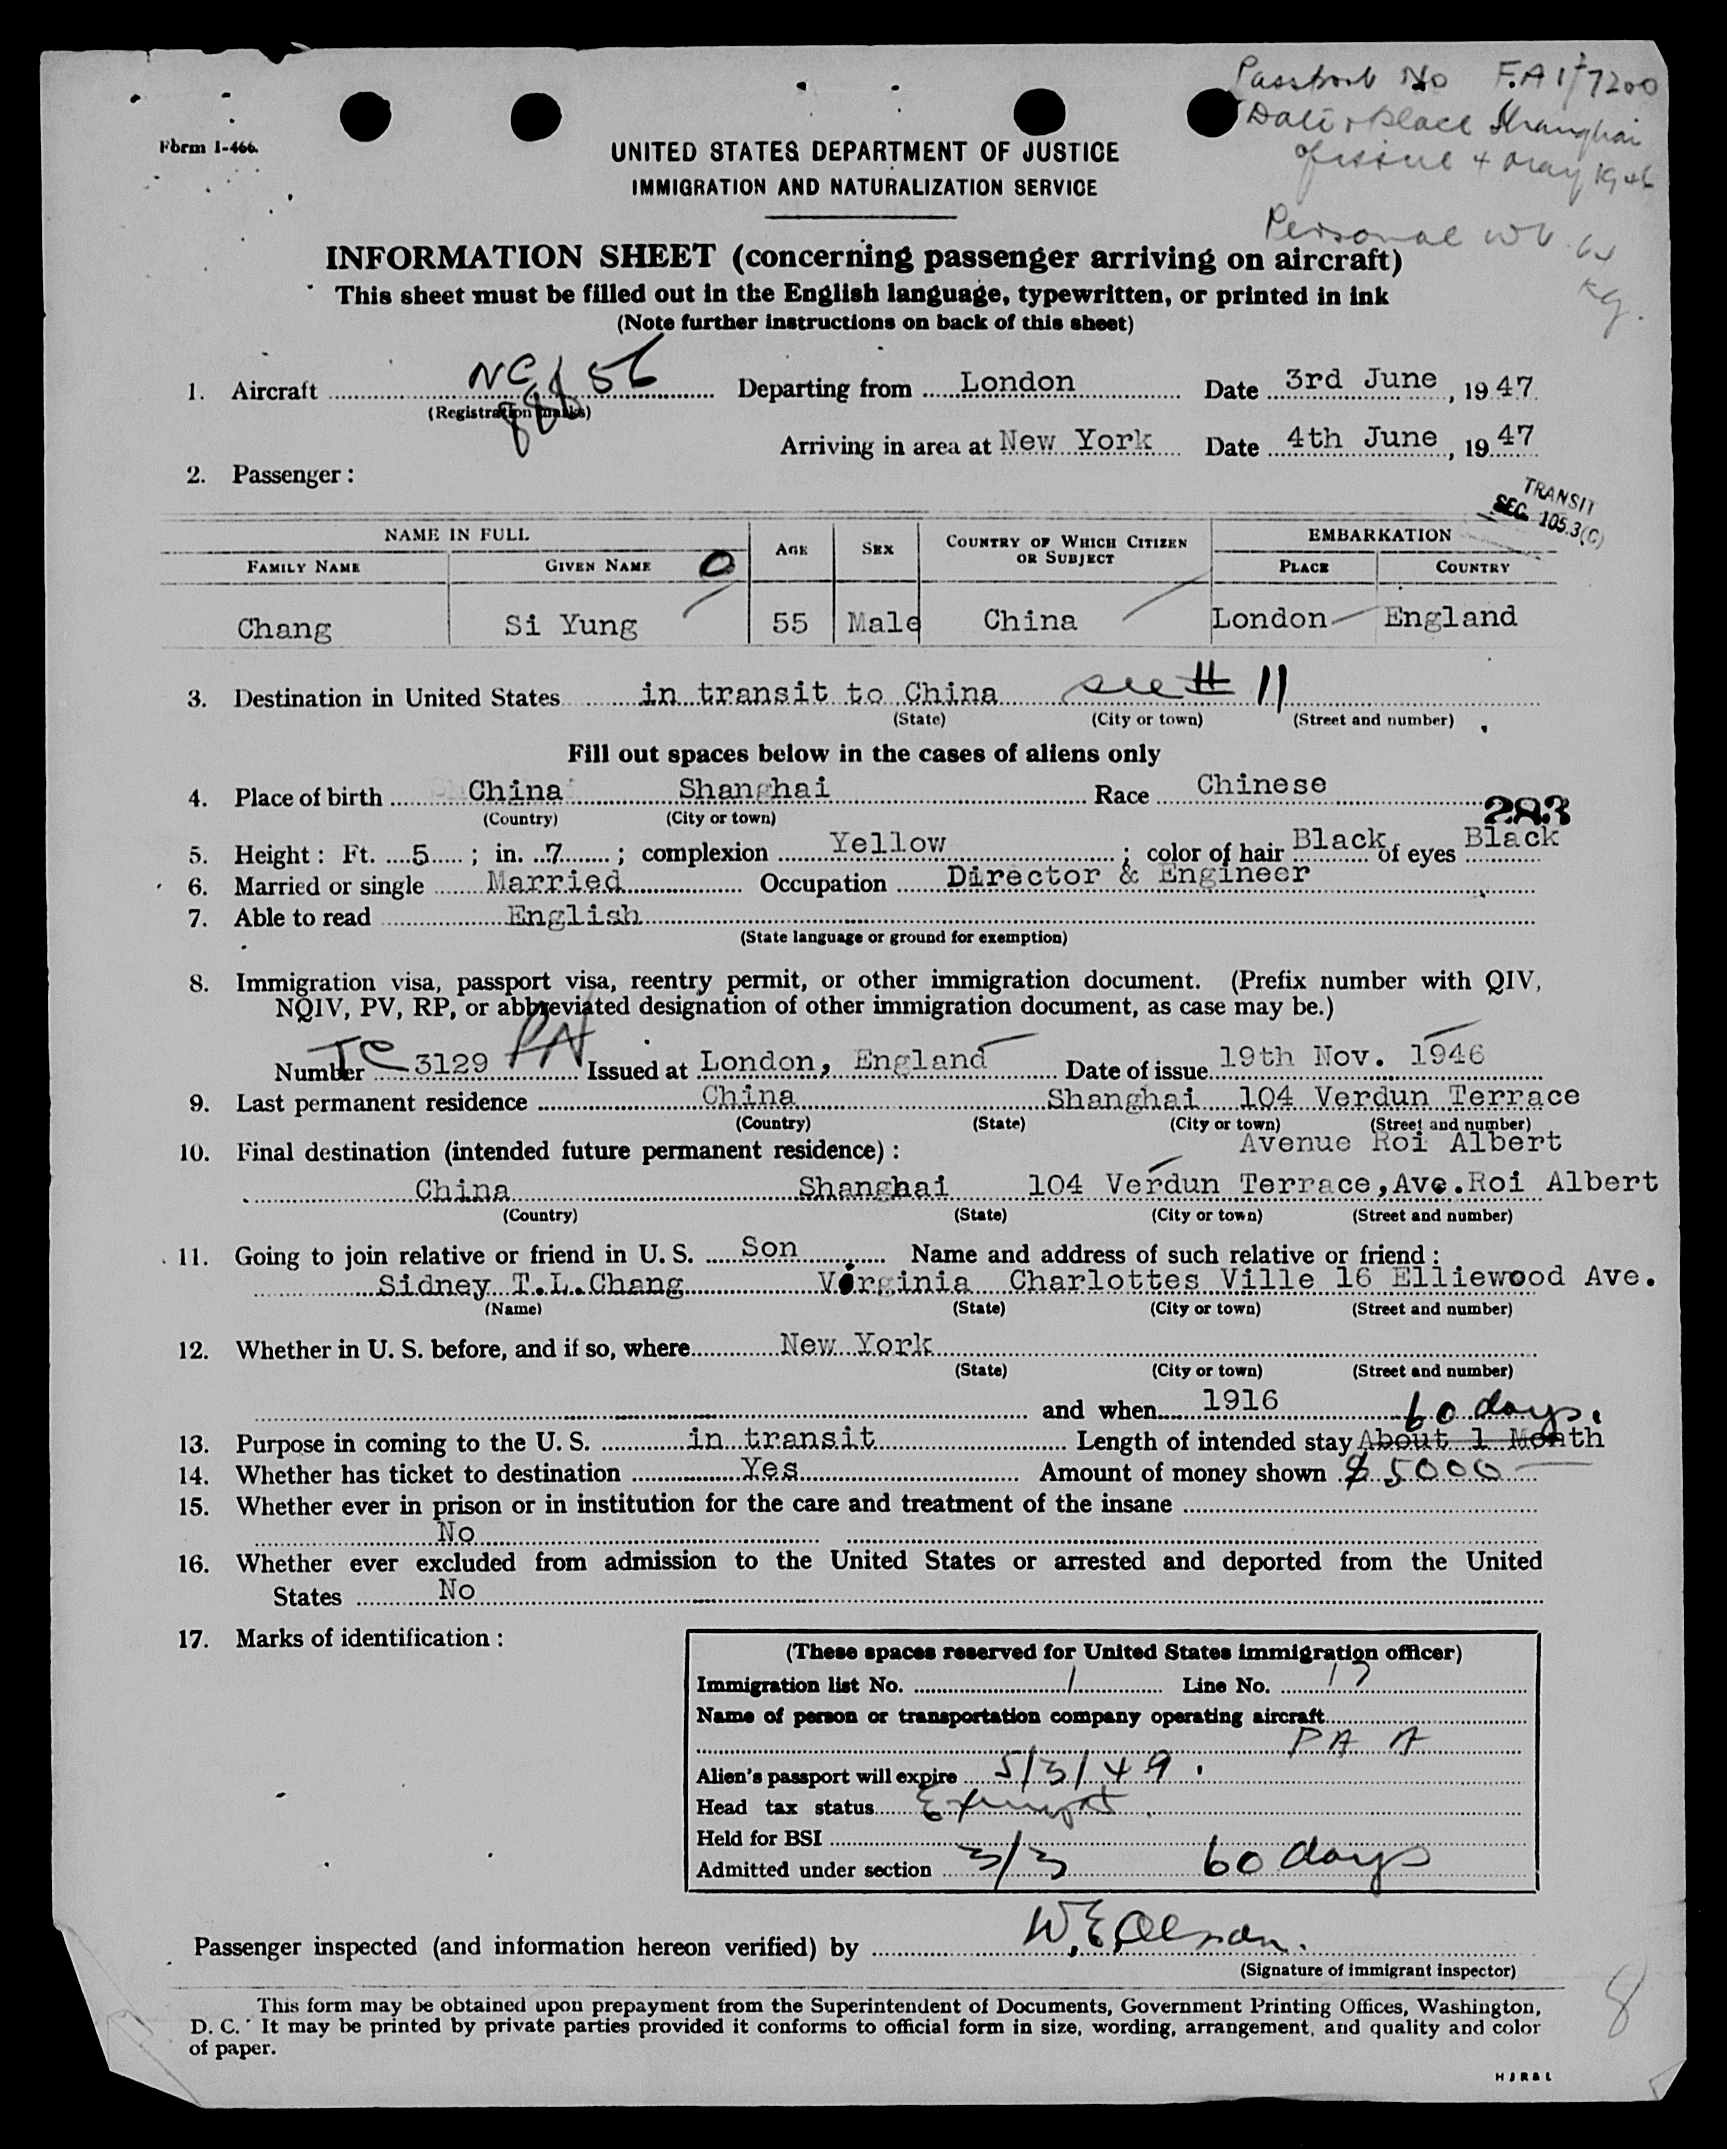 Passport No F.A 1/7200
Date & place Shanghai
of issue 4 May 1946
Personal wt. 60
kg.
Form I-466.
UNITED STATES DEPARTMENT OF JUSTICE
IMMIGRATION AND NATURALIZATION SERVICE
INFORMATION SHEET (concerning passenger arriving on aircraft)
This sheet must be filled out in the English language, typewritten, or printed in ink
(Note further instructions on back of this sheet)
1. Aircraft NC 88856 Departing from London Date 3rd June, 1947
(Registration marks)
Arriving in area at New York Date 4th June, 1947
2. Passenger:
TRANSIT
SEC. 105.3(C)
NAME IN FULL AGE SEX COUNTRY OF WHICH CITIZEN OR SUBJECT EMBARKATION
FAMILY NAME GIVEN NAME PLACE COUNTRY
Chang Si Yung 55 Male China London England
3. Destination in United States in transit to China see # 11
(State) (City or town) (Street and number)
Fill out spaces below in the cases of aliens only
4. Place of birth China Shanghai Race Chinese
(Country) (City or town)
283
5. Height: Ft. 5; in. 7; complexion Yellow; color of hair Black of eyes Black
6. Married or single Married Occupation Director & Engineer
7. Able to read English
(State language or ground for exemption)
8. Immigration visa, passport visa, reentry permit, or other immigration document. (Prefix number with QIV,
NQIV, PV, RP, or abbreviated designation of other immigration document, as case may be.)
Number TC 3129 PV Issued at London, England Date of issue 19th Nov. 1946
9. Last permanent residence China Shanghai 104 Verdun Terrace
(Country) (State) (City or town) (Street and number)
Avenue Roi Albert
10. Final destination (intended future permanent residence):
China Shanghai 104 Verdun Terrace,Ave.Roi Albert
(Country) (State) (City or town) (Street and number)
11. Going to join relative or friend in U. S. Son Name and address of such relative or friend:
Sidney T.L.Chang Virginia Charlottes Ville 16 Elliewood Ave.
(Name) (State) (City or town) (Street and number)
12. Whether in U. S. before, and if so, where New York
(State) (City or town) (Street and number)
and when 1916 60 days.
13. Purpose in coming to the U. S. in transit Length of intended stay About 1 Month
14. Whether has ticket to destination Yes Amount of money shown $ 5000
15. Whether ever in prison or in institution for the care and treatment of the insane
No
16. Whether ever excluded from admission to the United States or arrested and deported from the United
States No
17. Marks of identification:
(These spaces reserved for United States immigration officer)
Immigration list No. 1 Line No. 17
Name of person or transportation company operating aircraft
P A A
Alien's passport will expire 5/3/49
Head tax status Exempt
Held for BSI
Admitted under section 3/3 60 days
Passenger inspected (and information hereon verified) by W.E. Olson.
(Signature of immigrant inspector)
This form may be obtained upon prepayment from the Superintendent of Documents, Government Printing Offices, Washington,
D. C. It may be printed by private parties provided it conforms to official form in size, wording, arrangement, and quality and color
of paper.
8
H J R & L